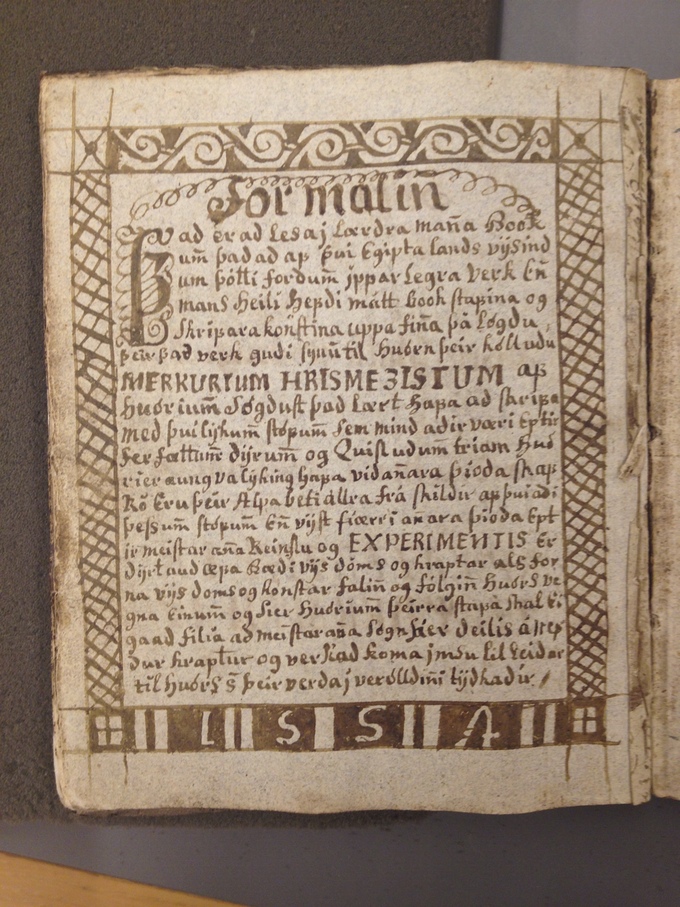 Formáliñ
Þad er ad Lesa j Lærdra maña Book
um̃ þad ad ap þvi Egipta lands vijsind
um þótti fordum̃ jppar Legra verk Eñ
mans Heili Hepdi mátt Book stapina og
Skriparakonstina uppa fiña þá Lögdu,
þeir þad verk gudi sÿnum̃ til Huörn þeir kölludu
MERKURIUM HRISMEZISTUM ap
Huörium̃ Sögdust þad Lært Hapa ad skripa
med þvilijkum̃ stöpum̃ Sem mindadir væri Eptir
Ferfættum̃ dijrum̃ og Quistudum̃ triam Huö
rier aungva lijking hapa vid añara þioda skap
Ró Eru þeir Alpabeti allra frá skildir ap þvi adi
þessum̃ stöpum̃ Eñ vijst fiærri añara þióda Ept
ir meistaraña Reinslu og EXPERIMENTIS Er
dijrt aud æpa Bædi vijsdóms og kraptar als for
na vijsdoms og konstar falin̄ og fólgin̄ Huörs ve
gna Einum̃ og Sier Huörium̃ þeirra stapa skal Ei
gaad filia ad meistaraña Sögn Sier deilis á Nep
dur kraptur og verkad koma
til Huörs s̃ þeir verda j verölldiñi tijdkadir
L S S A